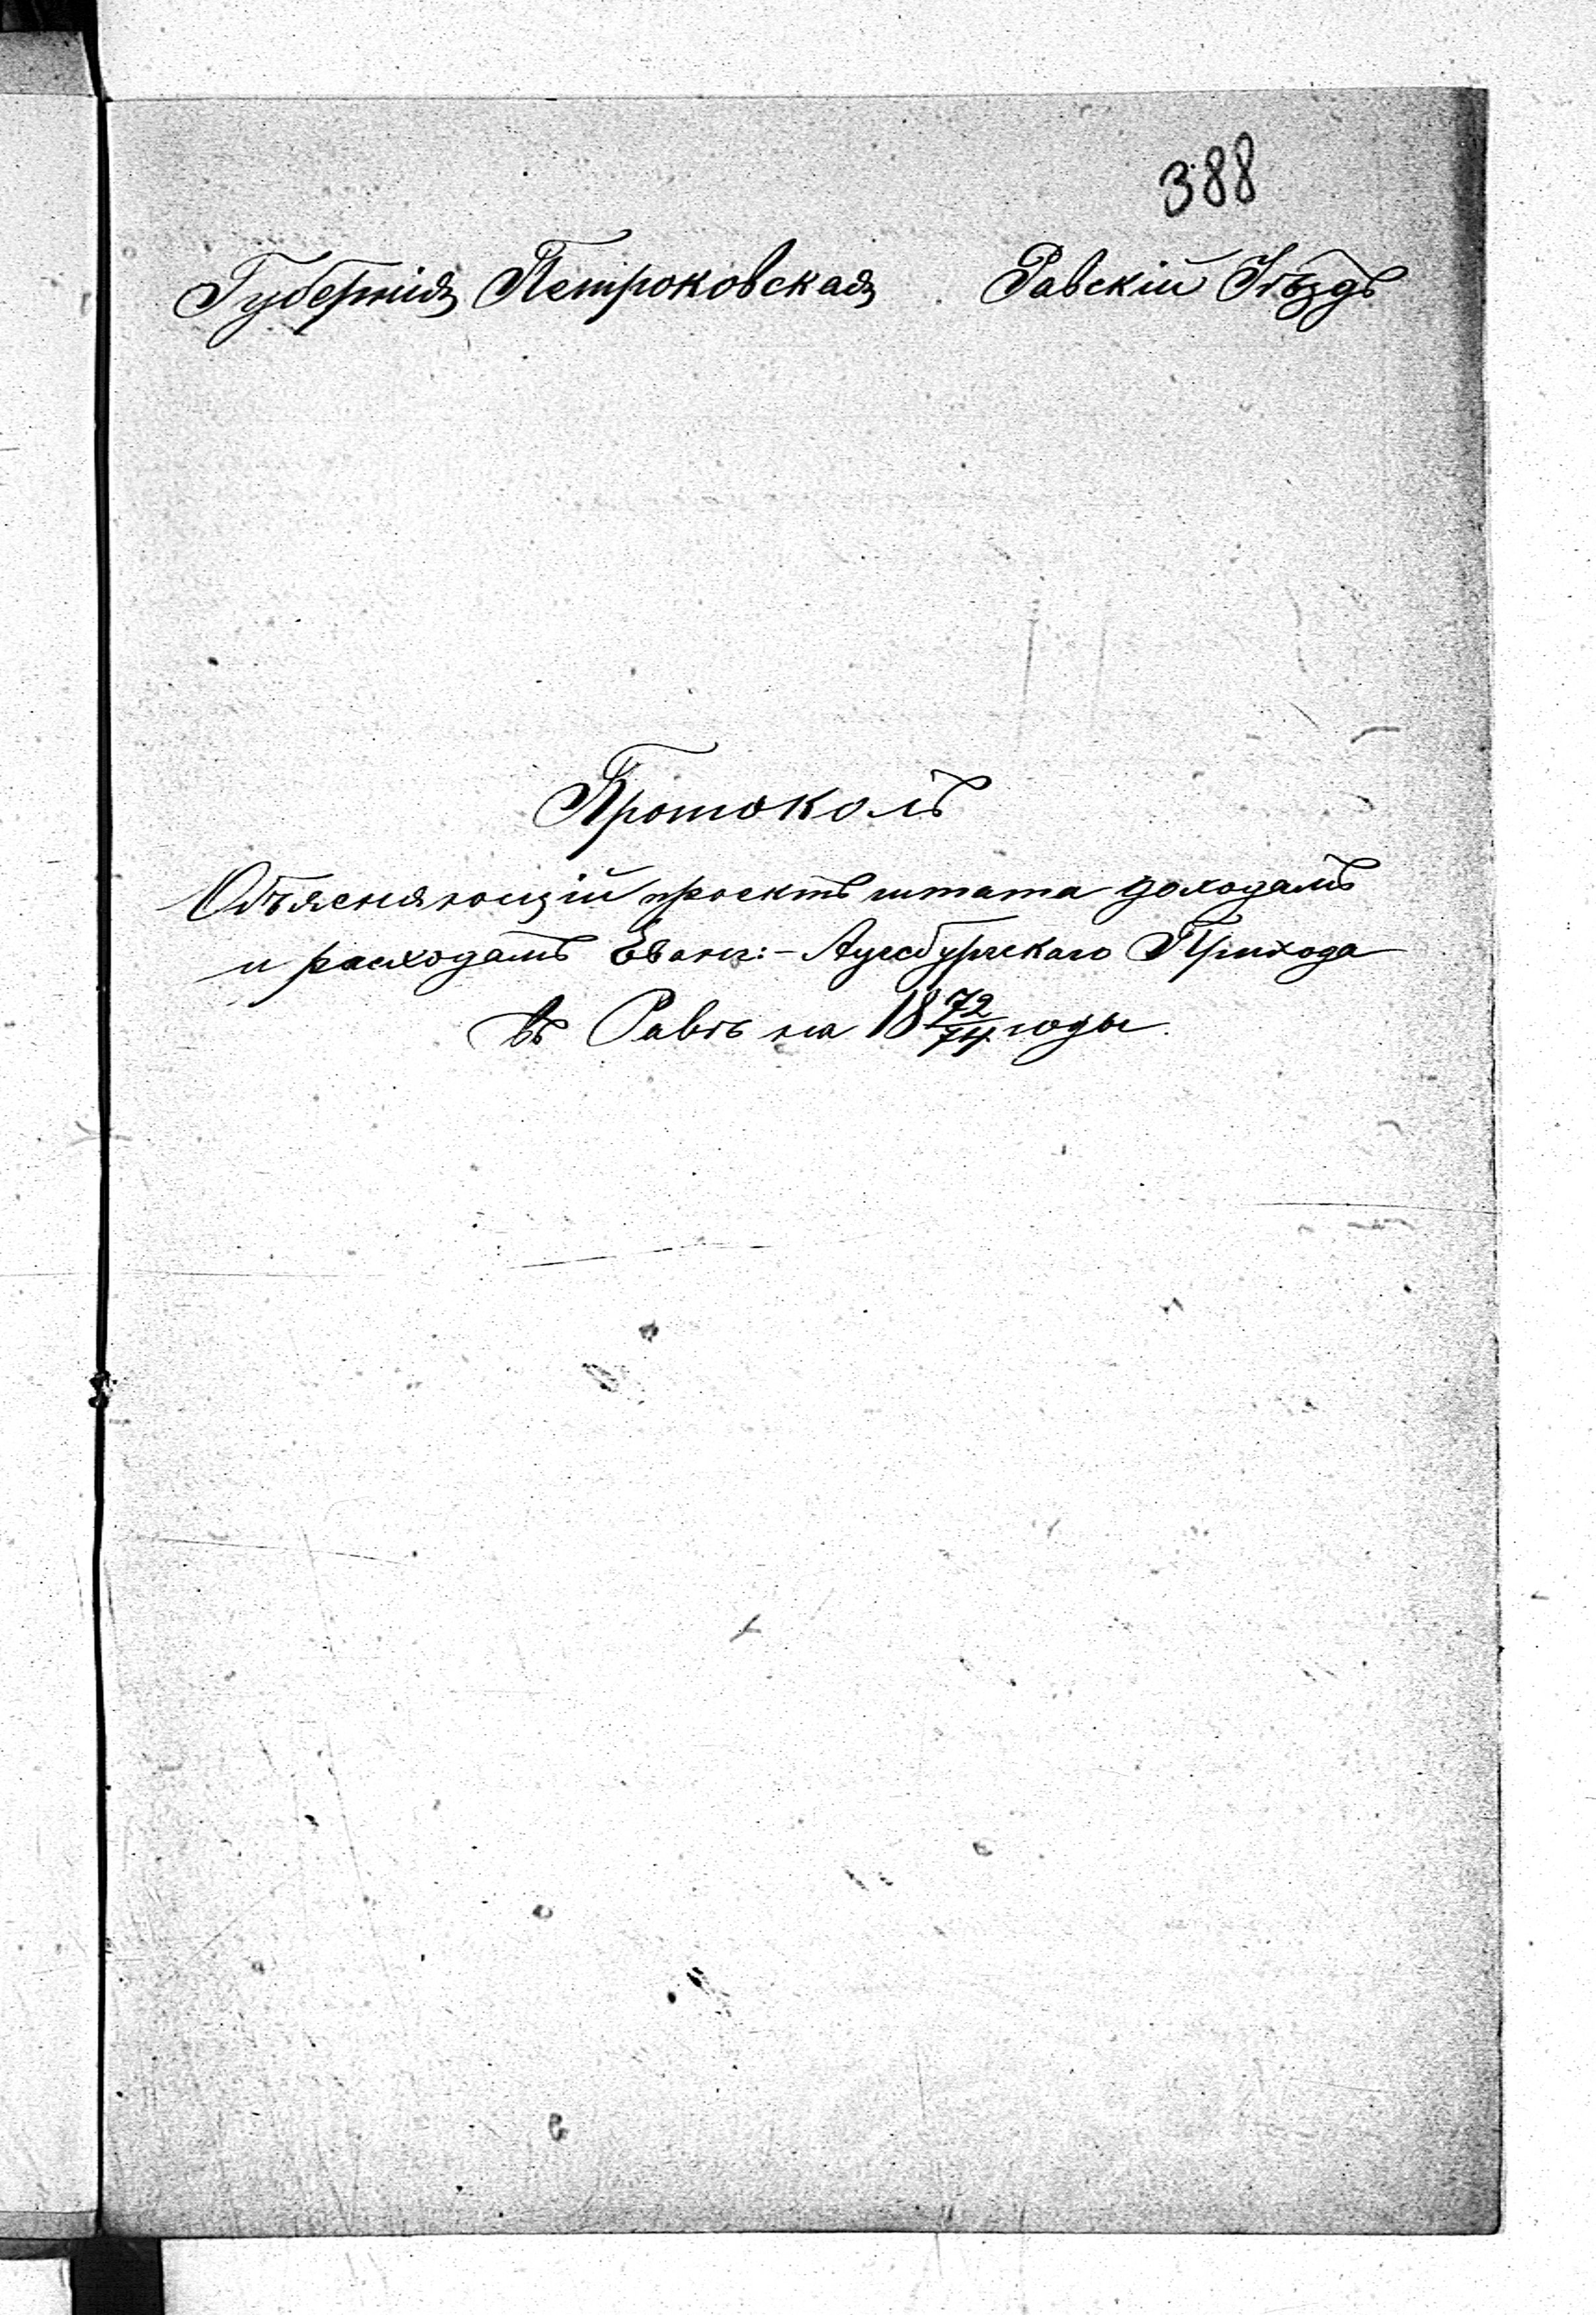 388
Губернія Петроковская Равскій Уѣздъ
Протоколъ
Объясняющій проектъ штата доходамъ
и расходамъ Еванг:- Аугсбургскаго Прихода
въ Равѣ на 18 72/74 годы.